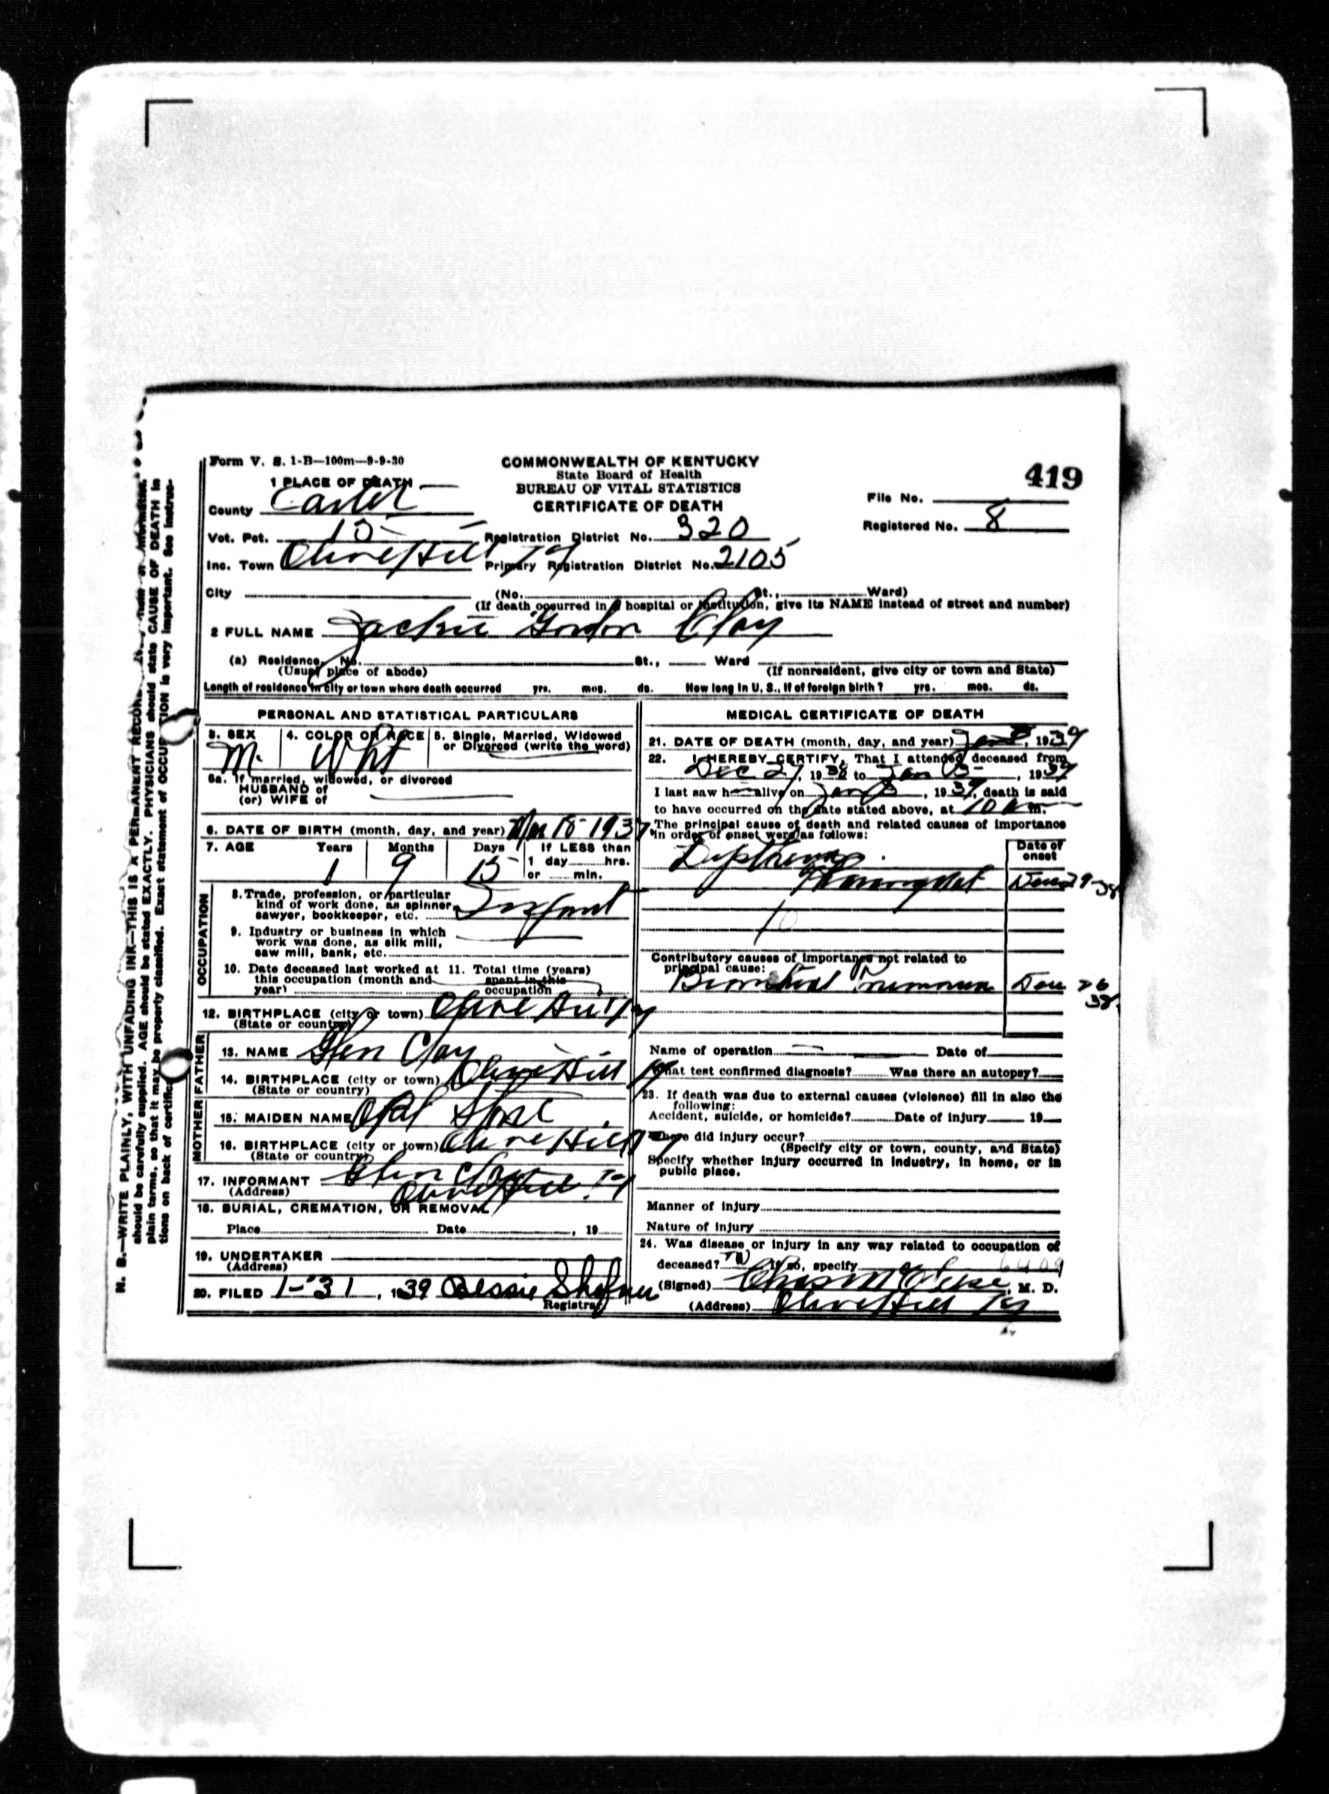 Form V. S. 1-B—100m—9-9-30
COMMONWEALTH OF KENTUCKY
State Board of Health
BUREAU OF VITAL STATISTICS
CERTIFICATE OF DEATH
419
File No.
Registered No. 8
1 PLACE OF DEATH
County Carter
Vot. Pct. 15
Registration District No. 320
Inc. Town Olive Hill Ky
Primary Registration District No. 2105
City (No. St., Ward)
(If death occurred in a hospital or institution, give its NAME instead of street and number)
2 FULL NAME Jackie Gordon Clay
(a) Residence, No. St., Ward
(Usual place of abode) (If nonresident, give city or town and State)
Length of residence in city or town where death occurred yrs. mos. ds. How long in U. S., if of foreign birth? yrs. mos. ds.
PERSONAL AND STATISTICAL PARTICULARS
3. SEX 4. COLOR OR RACE 5. Single, Married, Widowed
or Divorced (write the word)
M. Wht
5a. If married, widowed, or divorced
HUSBAND of
(or) WIFE of
6. DATE OF BIRTH (month, day, and year) 1937
7. AGE Years Months Days If LESS than
1 day hrs.
or min.
1 9 15
OCCUPATION
8. Trade, profession, or particular
kind of work done, as spinner,
sawyer, bookkeeper, etc. Infant
9. Industry or business in which
work was done, as silk mill,
saw mill, bank, etc.
10. Date deceased last worked at
this occupation (month and
year)
11. Total time (years)
spent in this
occupation
12. BIRTHPLACE (city or town) Olive Hill Ky
(State or country)
FATHER
13. NAME Glen Clay
14. BIRTHPLACE (city or town) Olive Hill Ky
(State or country)
MOTHER
15. MAIDEN NAME Opal
16. BIRTHPLACE (city or town) Olive Hill Ky
(State or country)
17. INFORMANT Glen Clay
(Address) Olive Hill Ky
18. BURIAL, CREMATION, OR REMOVAL
Place Date , 19
19. UNDERTAKER
(Address)
20. FILED 1-31, 1939 Bessie
Registrar
MEDICAL CERTIFICATE OF DEATH
21. DATE OF DEATH (month, day, and year) Jan 8, 1939
22. I HEREBY CERTIFY, That I attended deceased from
Dec 27, 1938 to Jan , 1939
I last saw h alive on Jan 8, 1939, death is said
to have occurred on the date stated above, at 10 a m.
The principal cause of death and related causes of importance
in order of onset were as follows:
Date of
onset
Diphtheria
Dec 29-38
Contributory causes of importance not related to
principal cause:
Bronchial Pneumonia Dec 26
38
Name of operation Date of
What test confirmed diagnosis? Was there an autopsy?
23. If death was due to external causes (violence) fill in also the
following:
Accident, suicide, or homicide? Date of injury 19
Where did injury occur?
(Specify city or town, county, and State)
Specify whether injury occurred in industry, in home, or in
public place.
Manner of injury
Nature of injury
24. Was disease or injury in any way related to occupation of
deceased? No If so, specify
(Signed) Chas M , M. D.
(Address) Olive Hill Ky
N. B.—WRITE PLAINLY, WITH UNFADING INK—THIS IS A PERMANENT RECORD.
should be carefully supplied. AGE should be stated EXACTLY. PHYSICIANS should state CAUSE OF DEATH in
plain terms, so that it may be properly classified. Exact statement of OCCUPATION is very important. See instruc-
tions on back of certificate.